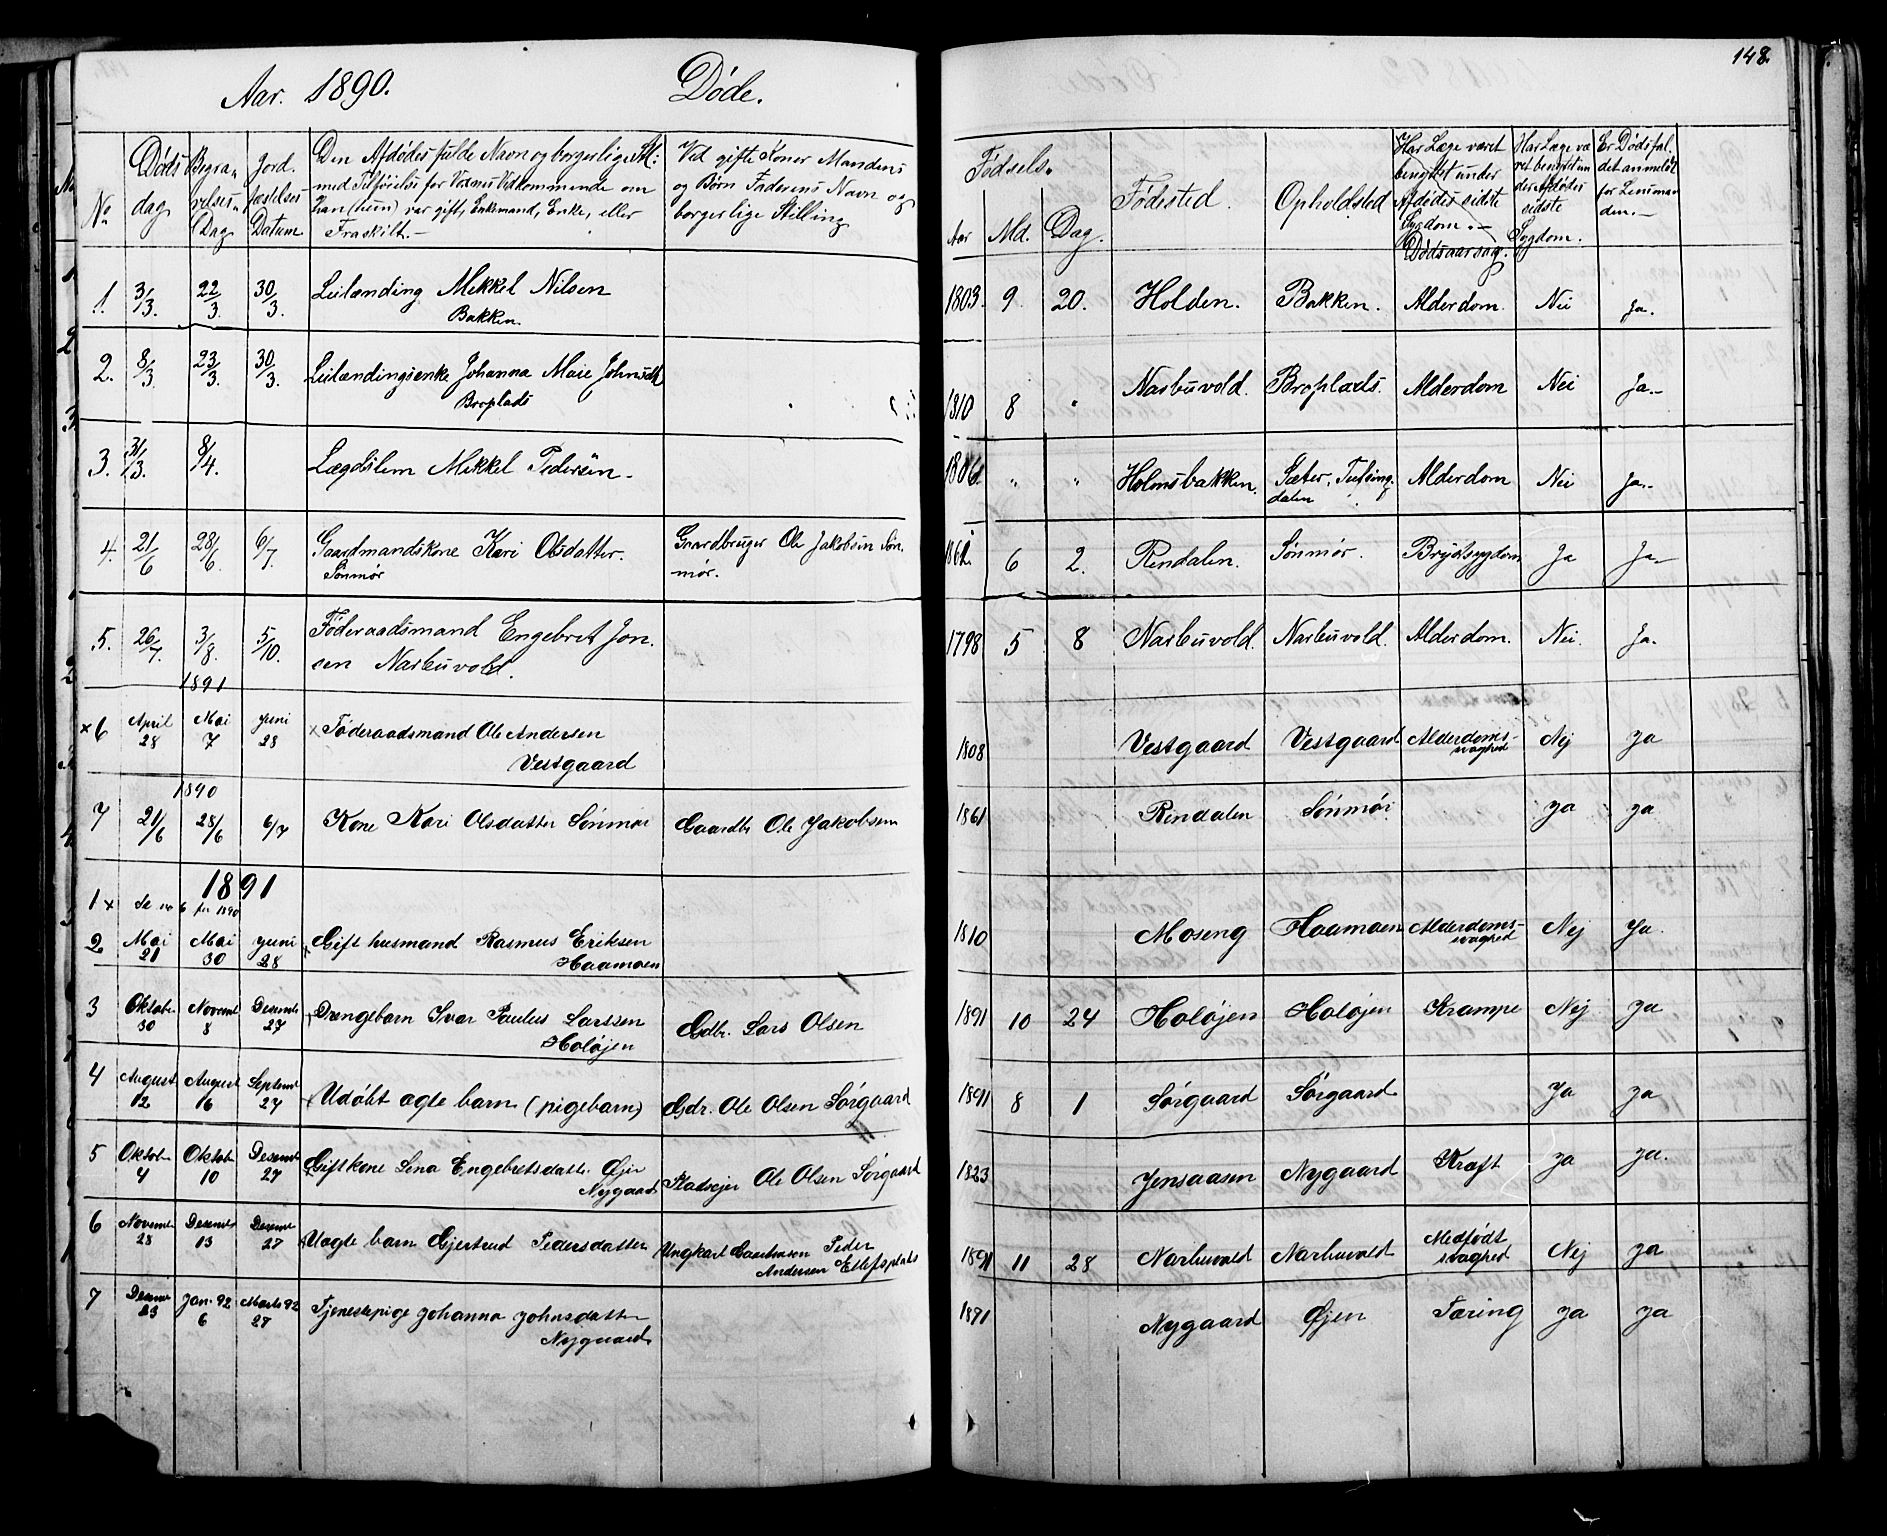 148.
Aar. 1890. Døde.
No Døds dag Begravelses Dag Jordfæstelses Datum
Den Afdødes fulde Navn og borgerlige St:
med Tilføielse for Voxnes Vedkommende om
han (hun) var gift, Enkemand, Enke, eller
Fraskilt.—
Ved gifte Koner Mandens
og Børn Faderens Navn og
borgerlige Stilling
Fødsels- Aar Md. Dag.
Fødested. Opholdsted
Har Læge været
benyttet under
Afdødes sidste
Sygdom.—
Dødsaarsag.
Har Læge væ
ret benyttet un
der Afdødes
sidste
Sygdom.
Er Dødsfal-
det anmeldt
for Lensman
den.—
1. 3/3. 22/3. 30/3. Leilænding Mikkel Nilsen 1803. 9. 20. Holden. Bakken. Alderdom. Nei Ja.
Bakken.
2. 8/3. 23/3. 30/3. Leilændingsenke Johanna Marie Johnsdtr 1810 8 " Narbuvold. Broplads. Alderdom Nei Ja.-
Broplads
3. 31/3. 8/4. Lægdslem Mikkel Pedersen. 1806. " " Holmsbakken. Sæter, Tufsing- Alderdom Nei Ja.-
dalen
4. 21/6 28/6. 6/7. Gaardmandskone Kari Olsdatter. Gaardbruger Ole Jakobsen Søn- 6 2. Rendalen. Sønmør. Brystsygdom Ja Ja-
Sønmør mør.
5. 26/7. 3/8. 5/10. Føderaadsmand Engebret Jon- 1798 5 8 Narbuvold. Narbuvold. Alderdom. Nei. Ja.
sen Narbuvold.
1891
x6 April 28 Mai 7 Juni 28 x Føderaadsmand Ole Andersen 1808 Vestgaard Vestgaard Alderdoms- Nej Ja
Vestgaard svaghed
1890
7 21/6 28/6 6/7 Kone Kari Olsdatter Sønmør Gaardbr Ole Jakobsen 1861 Rendalen Sønmør. Ja Ja
1891
1 x Se no 6 for 1890
2 Mai 21 Mai 30 Juni 28 Gift husmand Rasmus Eriksen 1810 Moseng Haamoen Alderdoms- Nej Ja.
Haamoen svaghed
3 Oktobr 30 Novembr 8 Desembr 27 Drengebarn Ivar Paulus Larssen Gdbr. Lars Olsen 1891 10 24 Holøjen Holøjen Krampe Nej Ja
Holøjen
4 August 12 August 16 Septembr 27 x Udøbt ægte barn (pigebarn) Gdr. Ole Olsen Sørgaard 1891 8 1 Sørgaard Sørgaard Ja Ja
5 Oktobr 4 Oktobr 10 Desembr 27 Gift kone Lena Engebretsdattr Øjen Pladsejer Ole Olsen Sørgaard 1823 Jensaasen Nygaard Kræft Ja Ja.
Nygaard
6 Novembr 28 Desembr 13 Desembr 27 Uægte barn Gjertrud Pedersdatter Ungkarl Peder 1891 11 28 Narbuvold Narbuvold Medfødt Nej Ja
Andersen Ellefsplads svaghed
7 Desembr 23 Jan. 92 6 Marts 92 27 Tjenestepige Johanna Johnsdatter 1871 Nygaard Øjen Tæring Ja Ja
Nygaard